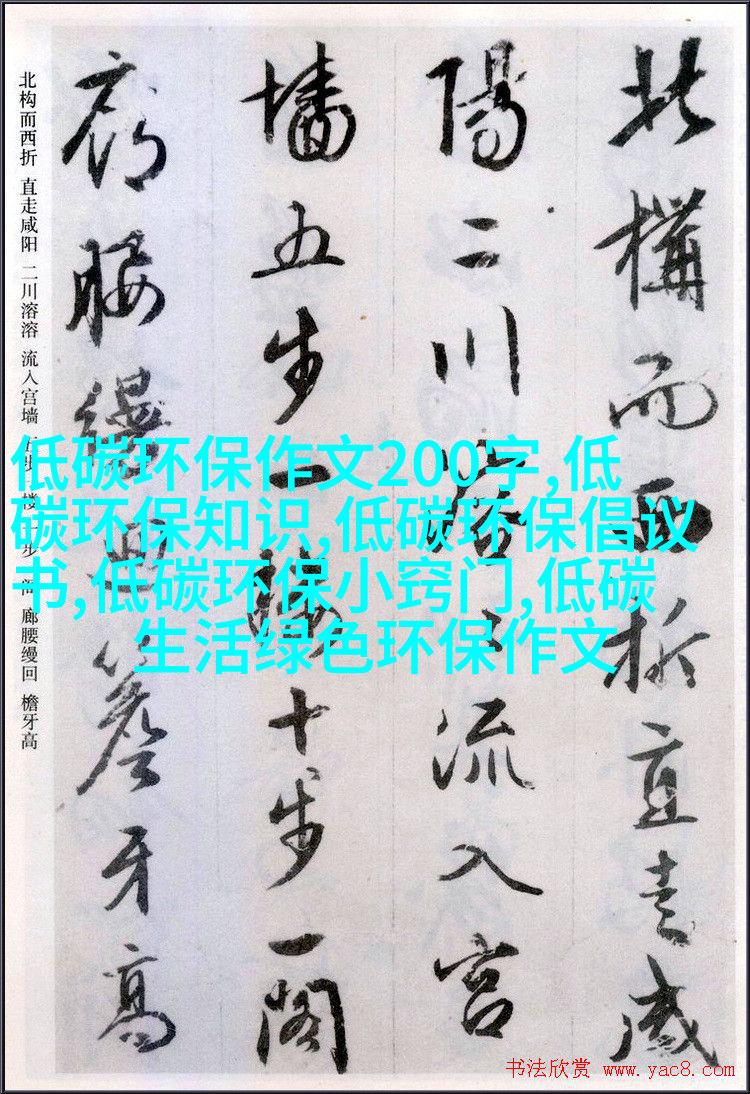 北構而西折直走咸
陽二川溶々流入宮
墙五步一樓十步一閣
廊腰縵迴簷牙高
北构而西折 直走咸阳 二川溶溶 流入宫墙 五步一楼 十步一阁 廊腰缦回 檐牙高
低碳环保作文200字,低
碳环保知识,低碳环保倡议
书,低碳环保小窍门,低碳
生活绿色环保作文
书法欣赏 www.yac8.com